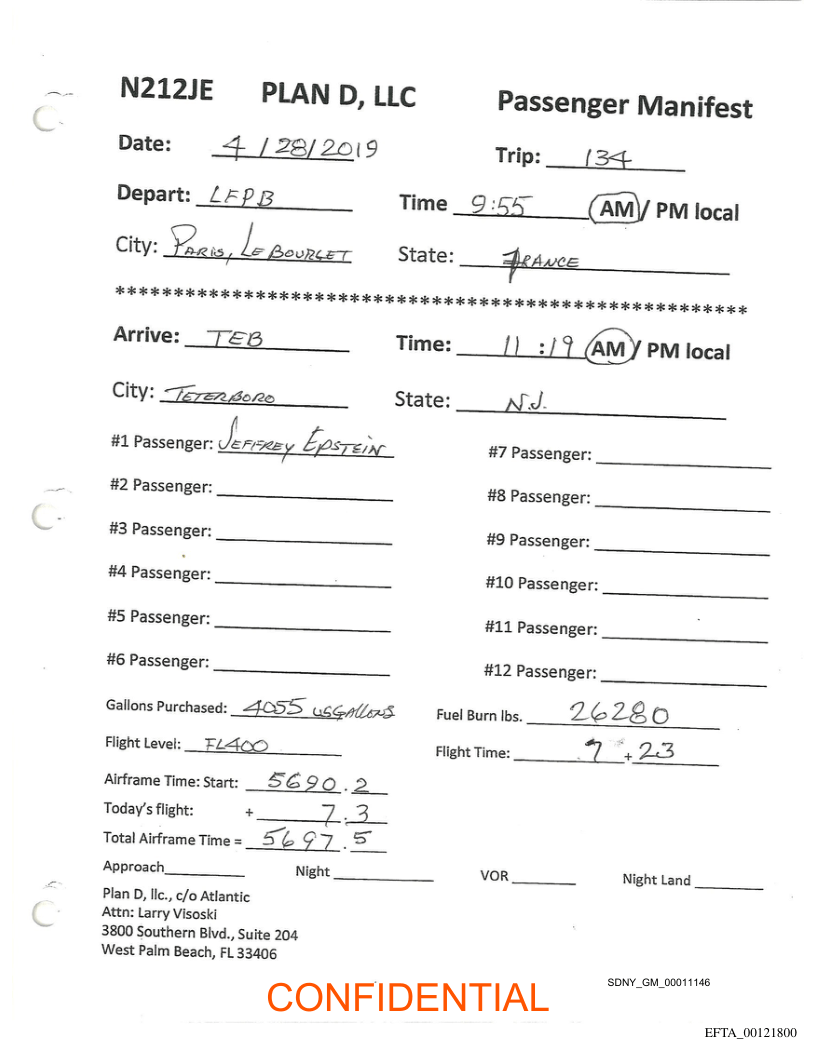 N212JE PLAN D, LLC Passenger Manifest
Date: 4/28/2019 Trip: 134
Depart: LFPB Time 9:55 AM/ PM local
City: PARIS, LE BOURGET State: FRANCE
******************************************************
Arrive: TEB Time: 11:19 AM/ PM local
City: TETERBORO State: N.J.
#1 Passenger: JEFFREY EPSTEIN #7 Passenger:
#2 Passenger: #8 Passenger:
#3 Passenger: #9 Passenger:
#4 Passenger: #10 Passenger:
#5 Passenger: #11 Passenger:
#6 Passenger: #12 Passenger:
Gallons Purchased: 4055 USGALLONS Fuel Burn lbs. 26280
Flight Level: FL400 Flight Time: 7 + 23
Airframe Time: Start: 5690.2
Today's flight: + 7.3
Total Airframe Time = 5697.5
Approach Night VOR Night Land
Plan D, llc., c/o Atlantic
Attn: Larry Visoski
3800 Southern Blvd., Suite 204
West Palm Beach, FL 33406
SDNY_GM_00011146
CONFIDENTIAL
EFTA_00121800